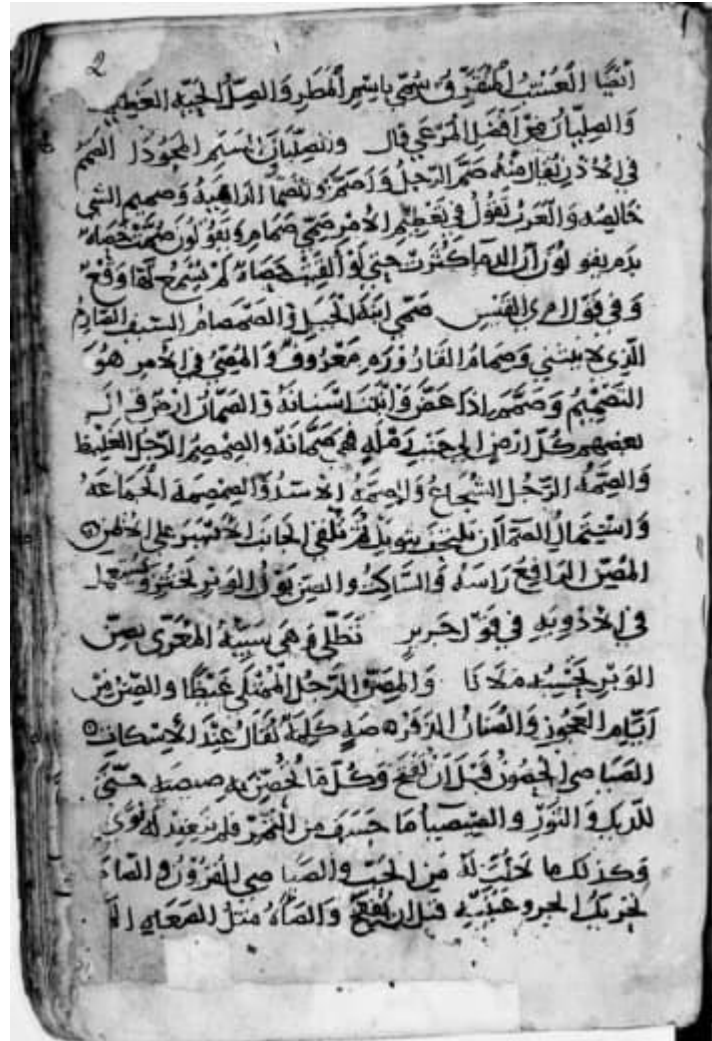 2
أيضا العشب المتفرق سمي باسم المطر والصل الحية العظيمـ
والصليان من أفضل المرعى قال وللصليان السنم المجودا الصمم
في الأذن يقال منه صم الرجل وأصم والصما الداهية وصميم الشي
خالصه والعرب تقول في تعظيم الأمر صمي صمام ويقولون صمت حصاة
بدم يقولون أن الدما كثرت حتى لو ألقيت حصاة لم يسمع لها وقع
وفي قول امرئ القيس صمي ابنة الجبل والصمصام السيف الصارم
الذي لا ينثني وصمام القارورة معروف والمضي في الأمر هو
التصميم وصمم إذا عض وأثبت أسنانه والصمان أرض قال
بعضهم كل أرض إلى جنب رملة هي صمانة والصمصم الرجل الغليظ
والصمة الرجل الشجاع والصمة الأسد والصمصمة الجماعة
واشتمال الصما أن يلتحف بثوبه ثم يلقي الجانب الأيسر على الأيمن
المصن الرافع رأسه والساكت والصن بول الوبر يخثر ويستعمل
في الأدوية في قول جرير تطلى وهي سيئة المعرى بصن
الوبر تحسبه ملابا والمصن الرجل الممتلي غيظا والصن من
أيام العجوز والصنان الدفر صه كلمة تقال عند الإسكات
الصياصي الحصون قبل أن تفتح وكل ما تحصن به صيصة حتى
للديك والثور والصيصا ما حشف من التمر فلم يعقد له نوى
وكذلك ما لا لب له من الحب والصياصي القرون والصاصاة
تحريك الجرو عينيه قبل أن يفتح والصاة مثل الصعاة